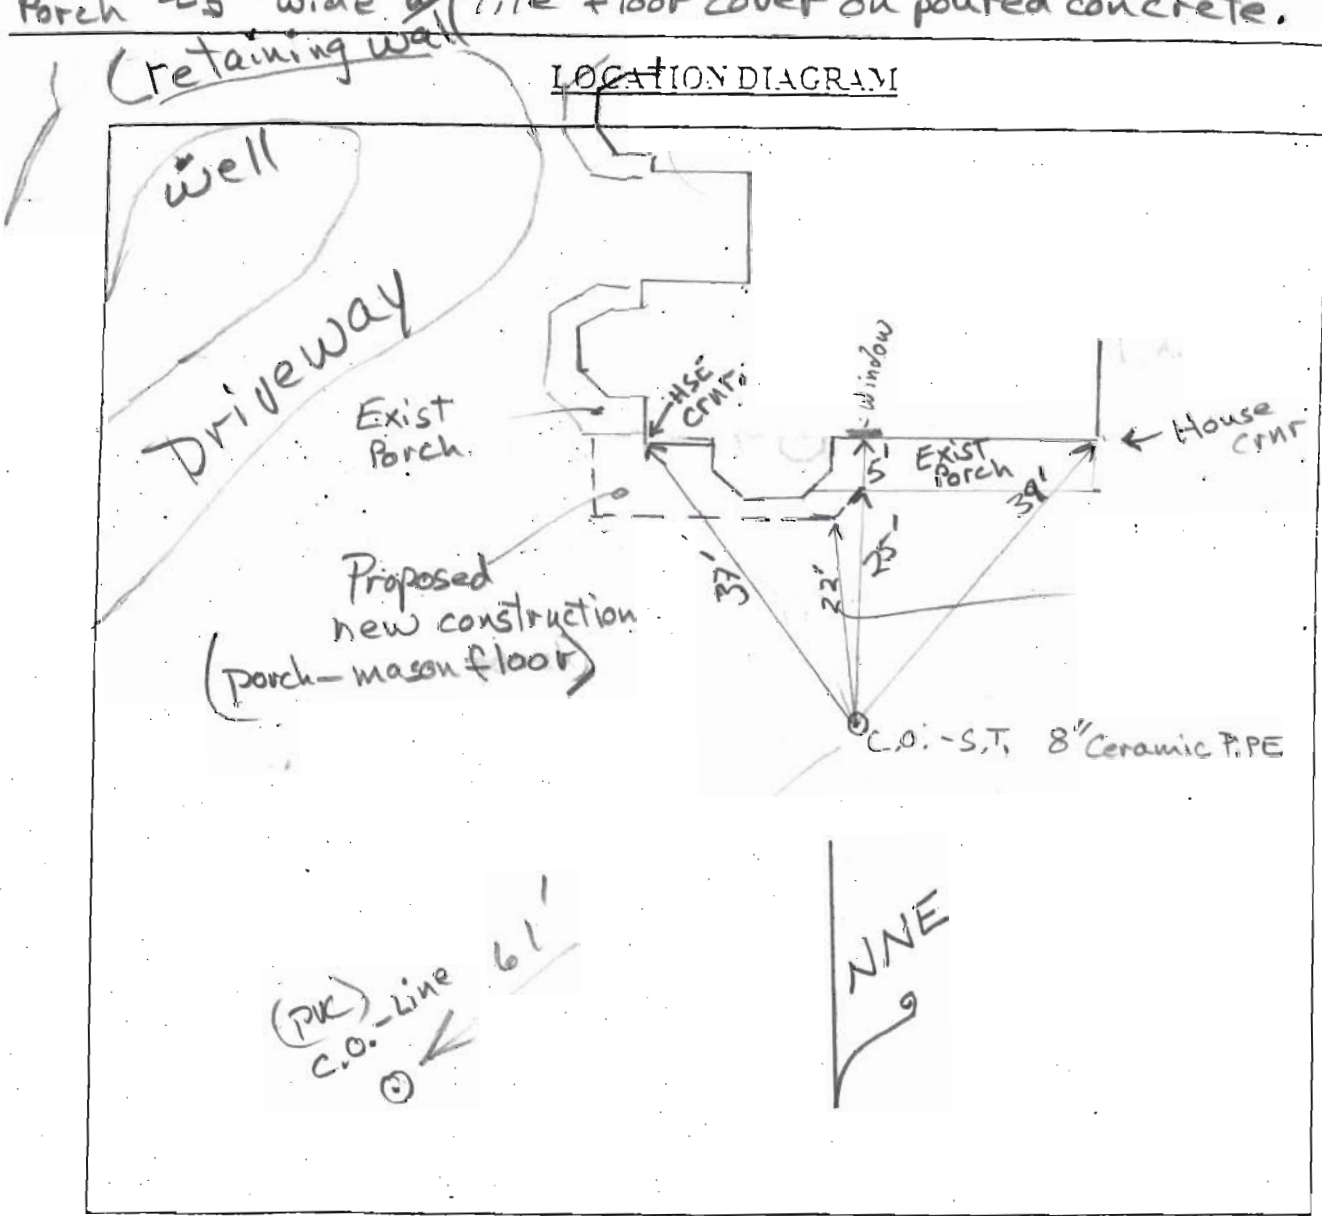 Porch 25" wide w/ Tile floor cover on poured concrete.
(retaining wall
LOCATION DIAGRAM
well
Driveway
Exist
Porch.
HSE
crnr.
Window
House
crnr
5'
Exist
Porch
39'
37'
22'
25'
Proposed
new construction
(porch-mason floor)
C.O.-S.T. 8" Ceramic PIPE
61'
(PVC)
C.O.-Line
NNE